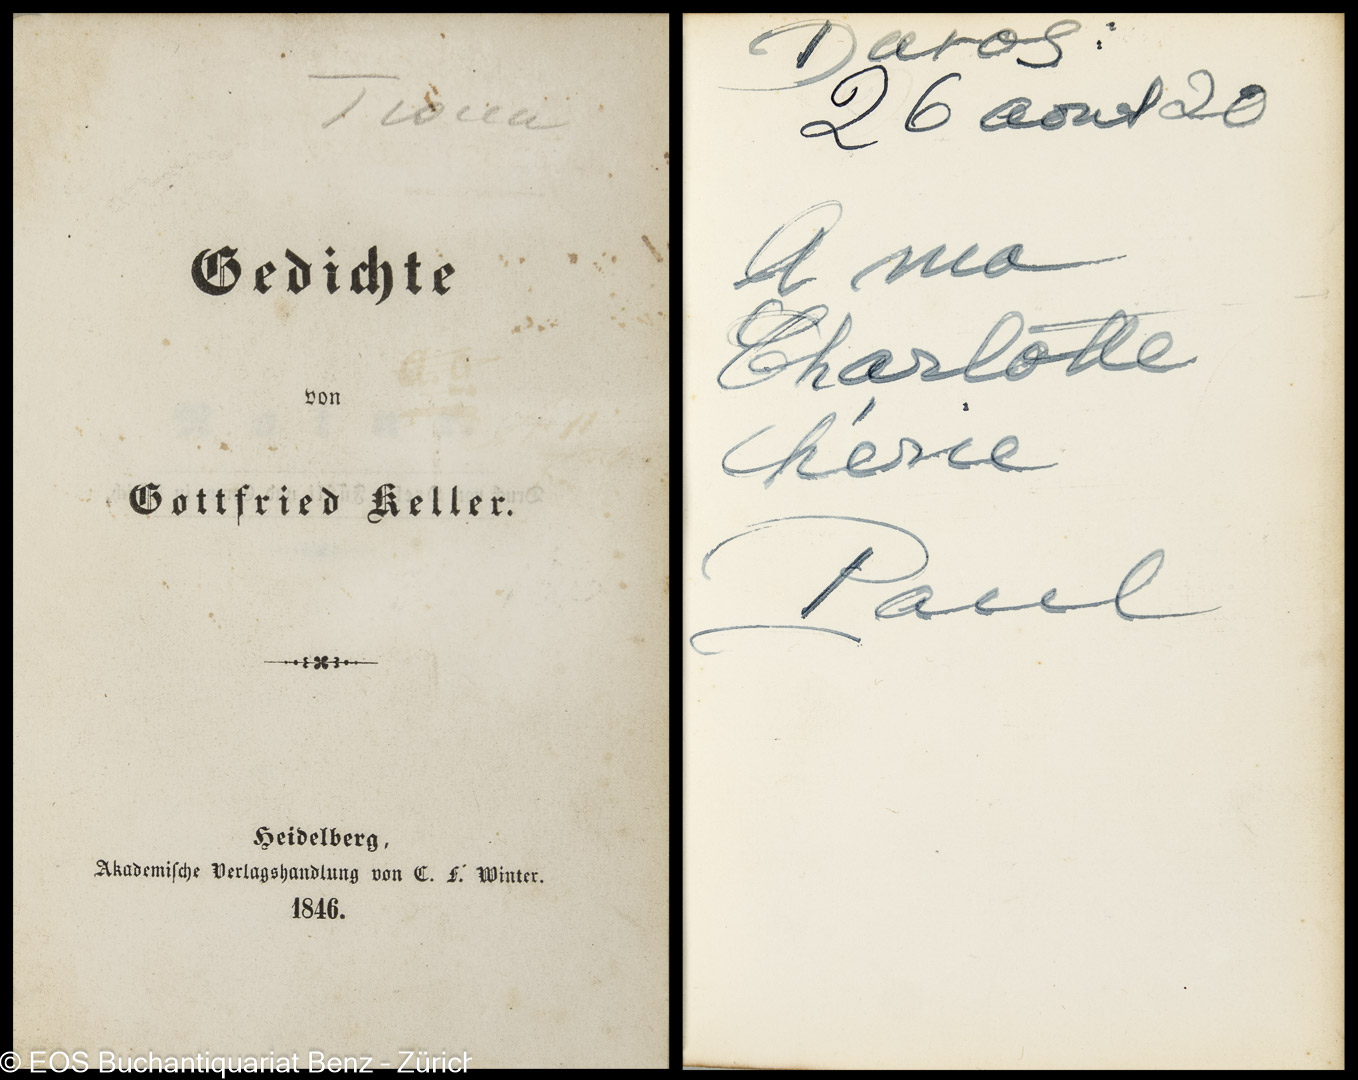 Gedichte
von
Gottfried Keller.
Heidelberg,
Akademische Verlagshandlung von C. F. Winter.
1846.
Davos:
26 aout 20
A ma
Charlotte
chérie
Paul
© EOS Buchantiquariat Benz - Zürich